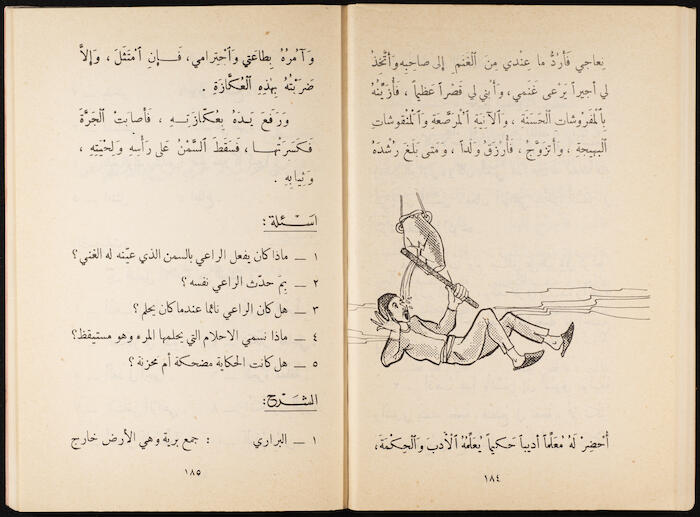 نِعاجي فَأَرُدُّ ما عِنْدي مِنَ الْغَنَمِ إِلى صاحِبِهِ وَأَتَّخِذُ
لي أَجيراً يَرْعى غَنَمي، وَأَبْني لي قَصْراً عَظيماً، فَأُزَيِّنُهُ
بِٱلْمَفْروشاتِ الْحَسَنَةِ، وَٱلْآنِيَةِ ٱلْمُرَصَّعَةِ وَٱلْمَنْقوشاتِ
ٱلْبَهيجَةِ، وَأَتَزَوَّجُ، فَأُرْزَقُ وَلَداً، وَمَتى بَلَغَ رُشْدَهُ
أُحْضِرُ لَهُ مُعَلِّماً أَديباً حَكيماً يُعَلِّمُهُ ٱلْأَدَبَ وَٱلْحِكْمَةَ،
١٨٤
وَآمُرُهُ بِطاعَتي وَٱحْتِرامي، فَإِنِ ٱمْتَثَلَ، وَإِلَّا
ضَرَبْتُهُ بِهٰذِهِ ٱلْعُكَّازَةِ.
وَرَفَعَ يَدَهُ بِعُكَّازَتِهِ، فَأَصابَتْ ٱلْجَرَّةَ
فَكَسَرَتْهَا، فَسَقَطَ ٱلسَّمْنُ عَلى رَأْسِهِ وَلِحْيَتِهِ،
وَثِيابِهِ.
اسئلة:
١ ــ ماذا كان يفعل الراعي بالسمن الذي عيّنه له الغني؟
٢ ــ بِمَ حدّث الراعي نفسه؟
٣ ــ هل كان الراعي نائما عندما كان يحلم؟
٤ ــ ماذا نسمي الاحلام التي يحلمها المرء وهو مستيقظ؟
٥ ــ هل كانت الحكاية مضحكة أم محزنة؟
الشرح:
١ ــ البراري : جمع برية وهي الأرض خارج
١٨٥